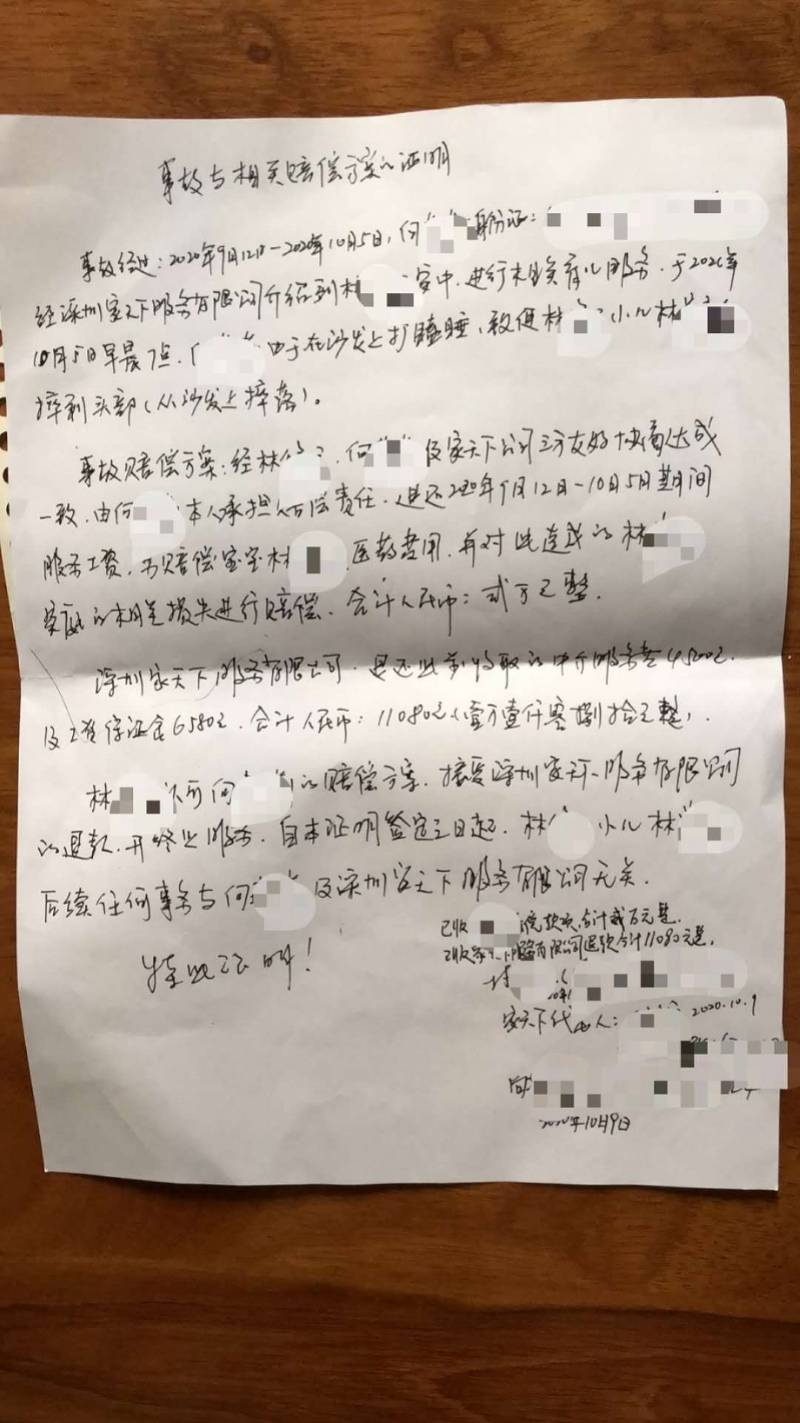 事故与相关赔偿方案的证明
事故经过：2020年9月12日—2020年10月5日，何 身份证：
经深圳家天下服务有限公司介绍到林 家中，进行木婴育儿服务，于2020年
10月5日早晨7点， 由于在沙发上打瞌睡，致使林 小儿林
摔到头部（从沙发上摔落）。
事故赔偿方案：经林 、何 及家天下公司三方友好协商达成
一致，由何 本人承担赔偿责任，退还2020年9月12日—10月5日期间
服务工资，并赔偿宝宝林 医药费用，并对此造成的林
家庭的相关损失进行赔偿，合计人民币：贰万元整．
深圳家天下服务有限公司，退还此前收取的中介服务费4500元，
及工资保证金6580元，合计人民币：11080元（壹万壹仟零捌拾元整）．
林 认可何 的赔偿方案，接受深圳家天下服务有限公司
的退款，并终止服务，自本证明签定之日起，林 小儿林
后续任何事务与何 及深圳家天下服务有限公司无关．
特此证明！
已收 款项合计贰万元整．
已收家天下服务有限公司退款合计11080元整．
家天下代 人： 2020.10.9
何
2020年10月9日